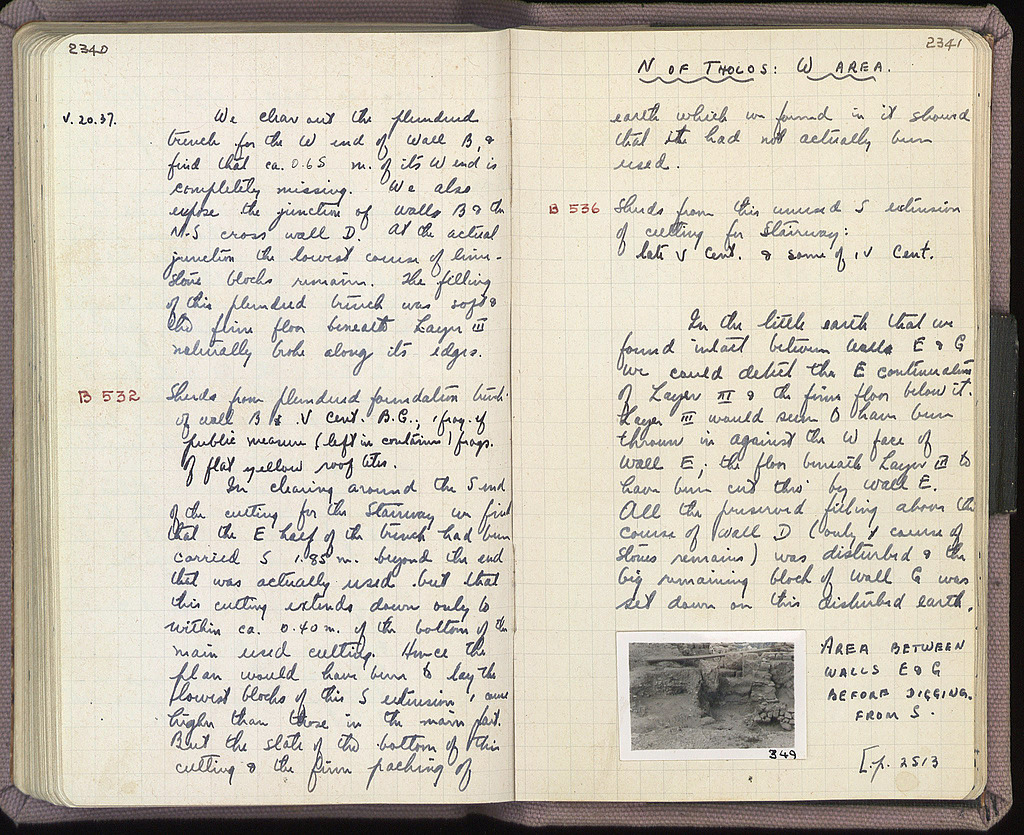 2340
V. 20.37.
We clear out the plundered
trench for the W end of wall B, &
find that ca. 0.65 m. of its W end is
completely missing. We also
expose the junction of walls B & the
N-S cross wall D. At the actual
junction the lowest course of lime-
stone blocks remains. The filling
of this plundered trench was soft &
the firm floor beneath Layer III
naturally broke along its edges.
B 532
Sherds from plundered foundation trench
of wall B: V cent. B.C.; 1 frag. of
public measure (left in container) frags.
of flat yellow roof tiles.
In clearing around the S end
of the cutting for the Stairway we find
that the E half of the trench had been
carried S 1.85 m. beyond the end
that was actually used but that
this cutting extends down only to
within ca. 0.40 m. of the bottom of the
main used cutting. Hence the
plan would have been to lay the
lowest blocks of this S extension 1 course
higher than those in the main part.
But the state of the bottom of this
cutting & the firm packing of
2341
N OF THOLOS: W AREA.
earth which we found in it showed
that it had not actually been
used.
B 536
Sherds from this unused S extension
of cutting for Stairway:
late V cent. & some of IV cent.
In the little earth that we
found intact between walls E & G
we could detect the E continuation
of Layer III & the firm floor below it.
Layer III would seem to have been
thrown in against the W face of
wall E; the floor beneath Layer III to
have been cut thro' by wall E.
All the preserved filling above the
course of wall D (only 1 course of
stones remains) was disturbed & the
big remaining block of wall G was
set down on this disturbed earth.
AREA BETWEEN
WALLS E & G
BEFORE DIGGING.
FROM S.
349
[p. 2513